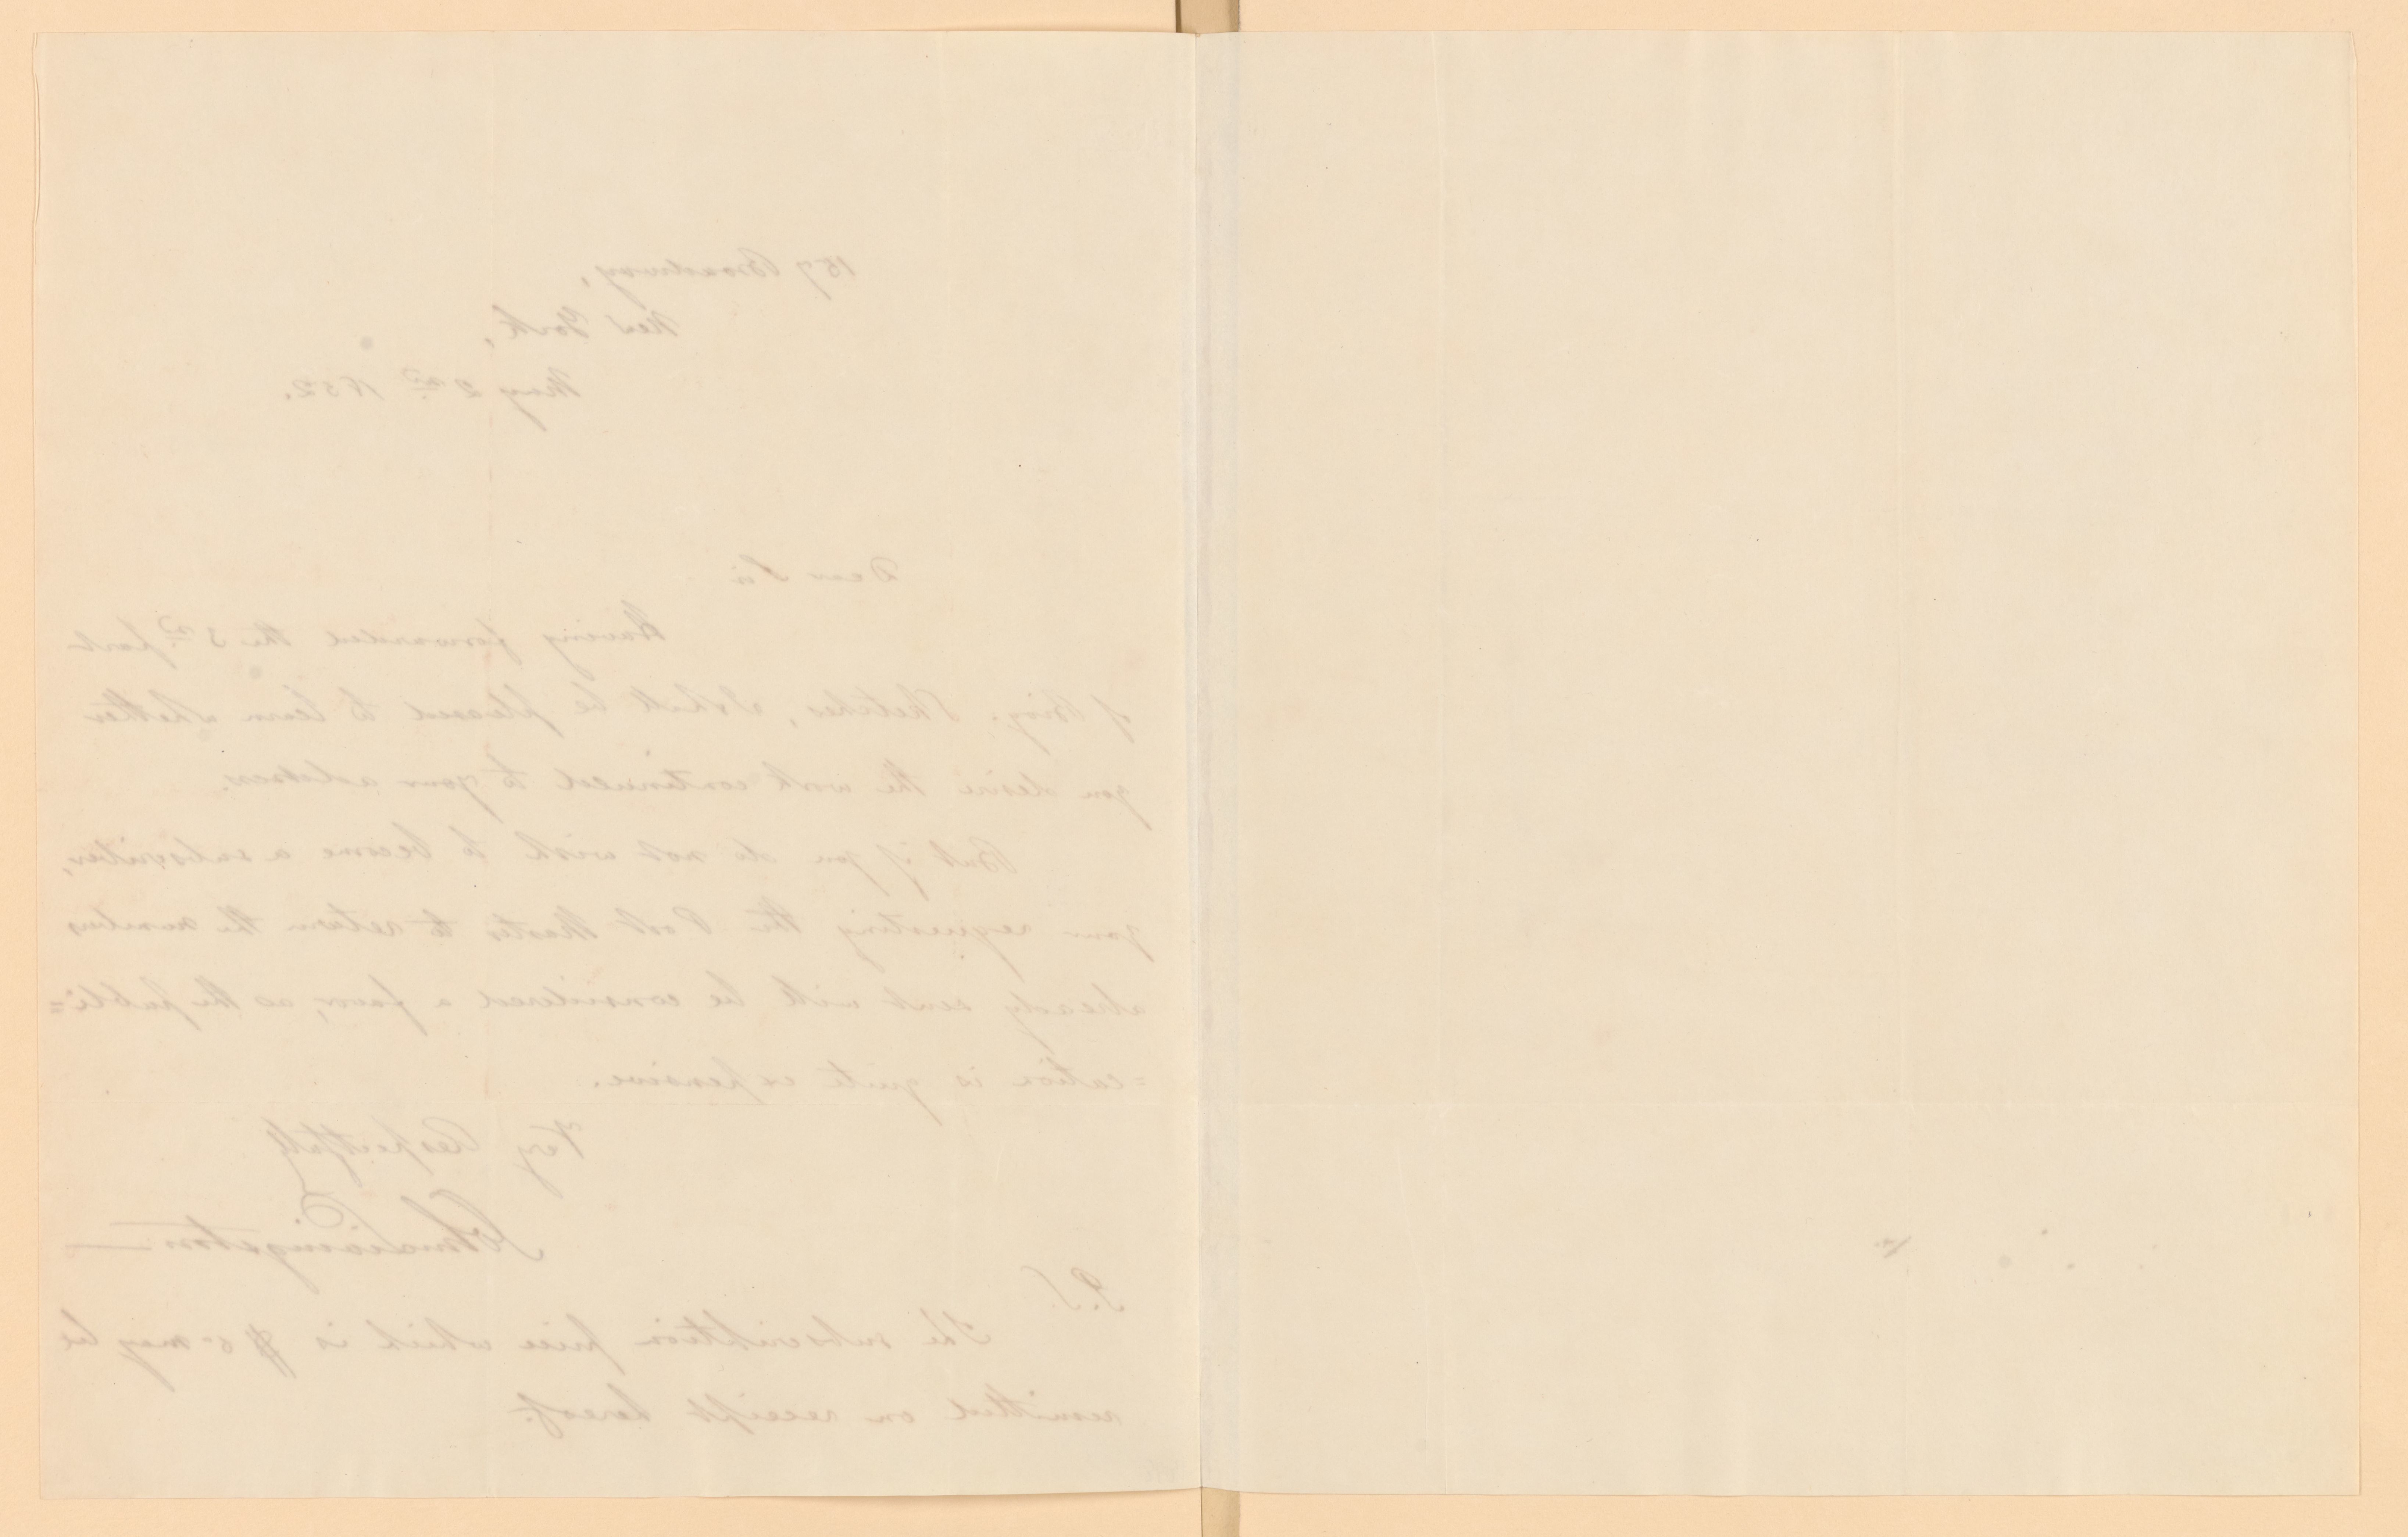 157 Broadway,
New York,
May 2nd 1852.
Dear Sir
Having forwarded the 3rd part
of Biog. Sketches, I shall be pleased to learn whether
you desire the work continued to your address.
But if you do not wish to become a subscriber,
your requesting the Post Master to return the numbers
already sent will be considered a favor, as the publi=
=cation is quite expensive.
Very Respectfully
John Livingston
P.S.
The subscription price which is $5 may be
remitted on receipt hereof.